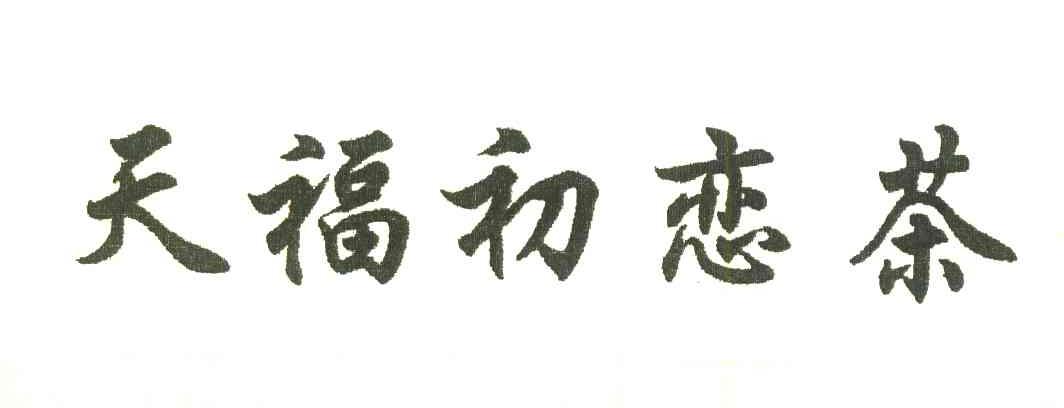 天福初恋茶